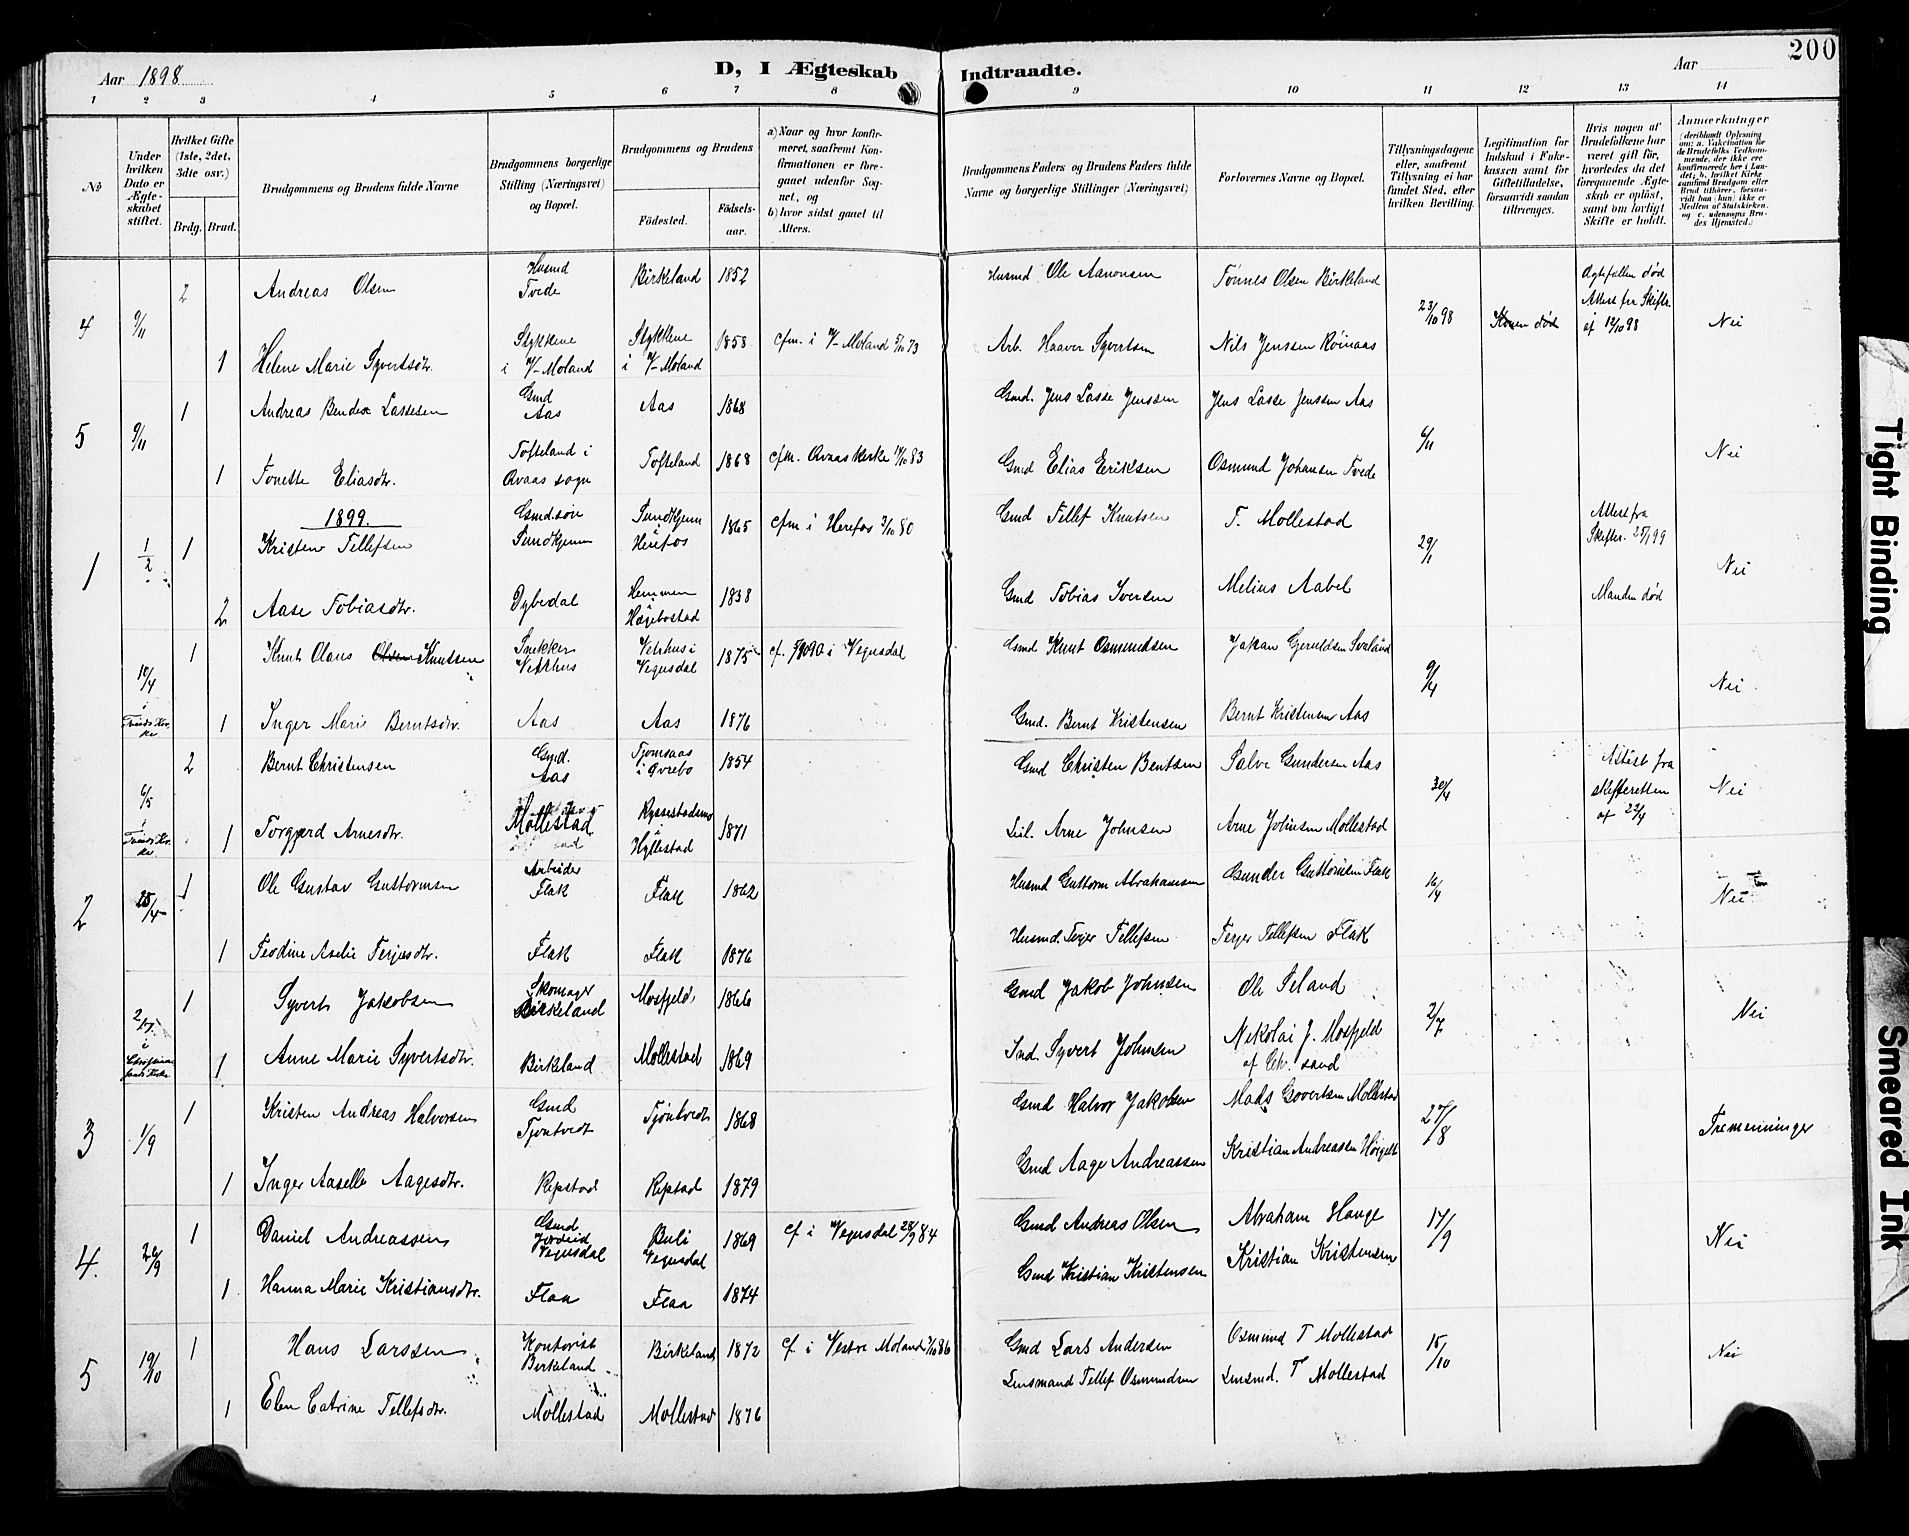 200
Aar 1898
D, I Ægteskab Indtraadte.
Aar
1 2 3 4 5 6 7 8 9 10 11 12 13 14
No
Under hvilken Dato er Ægteskabet stiftet.
Hvilket Gifte (1ste, 2det, 3dte osv.)
Brdg. Brud.
Brudgommens og Brudens fulde Navne
Brudgommens borgerlige Stilling (Næringsvei) og Bopæl.
Brudgommens og Brudens
Fødested.
Fødselsaar.
a) Naar og hvor konfirmeret, saafremt Konfirmationen er foregaaet udenfor Sognet, og
b) hvor sidst gaaet til Alters.
Brudgommens Faders og Brudens Faders fulde Navne og borgerlige Stillinger (Næringsvei)
Forlovernes Navne og Bopæl.
Tillysningsdagene eller, saafremt Tillysning ei har fundet Sted, efter hvilken Bevilling.
Legitimation for Indskud i Enkekassen samt for Giftetilladelse, forsaavidt saadan tiltrænges.
Hvis nogen af Brudefolkene har været gift før, hvorledes da det foregaaende Ægteskab er opløst, samt om lovligt Skifte er holdt.
Anmærkninger
4 9/11 2 Andreas Olsen Husmd Tvede Birkeland 1852 Husmd Ole Aanonsen Tønnes Olsen Birkeland 23/10 98 Konen død Ægtefællen død Attest fra Skifter. af 12/10 98 Nei
1 Helene Marie Syvertsdtr. Stykkene i V-Moland Stykkene i V-Moland 1858 cfm. i V-Moland 5/10 73 Arb. Haaver Syvertsen Nils Jenssen Røinaas
5 9/11 1 Andreas Bendix Lassesen Gmd Aas Aas 1868 Gmd. Jens Lasse Jenssen Jens Lasse Jenssen Aas 6/11 Nei
1 Tonette Eliasdtr. Tofteland i Øvaas sogn Tofteland 1868 cfm. Øvaas Kirke 14/10 83 Gmd Elias Eriksen Osmund Johansen Tvede
1899.
1 1/2 1 Kristen Tellefsen Gmd.søn Sundtjenn Sundtjenn i Herefos 1865 cfm i Herefos 3/10 80 Gmd Tellef Knutsen T. Mollestad 29/1 Attest fra Skifter. 25/1 99 Nei
2 Aase Tobiasdtr. Dybedal Hemmen Hægebostad 1838 Gmd Tobias Iversen Melius Aabel Manden død
10/4 i Tveids Kirke 1 Knut Olaus Olsen Knutsen Snekker Vehhus Vehhus i Vegusdal 1875 cf. i Vegusdal Gmd Knut Osmundsen Jakan Gjeruldsen Svaland 9/4 Nei
1 Inger Marie Berntsdtr. Aas Aas 1876 Gmd. Bernt Kristensen Bernt Kristensen Aas
6/5 i Tveids Kirke 2 Bernt Christensen Gmd. Aas Tjomsaas i Øvrebø 1854 Gmd Christen Bentsen Salve Gundersen Aas 30/4 Attest fra skifteretten af 22/4 Nei
1 Torgjerd Arnesdtr. Mollestad Ryssestadsmo Hyllestad 1871 Arne Johnsen Arne Johnsen Mollestad
2 25/4 1 Ole Gustav Guttormsen Arbeider Flak Flak 1862 Husmd Guttorm Abrahamsen Gunder Guttormsen Flak 16/4 Nei
1 Teodine Aselie Terjesdtr. Flak Flak 1876 Husmd. Terjer Tellefsen Terjer Tellefsen Flak
2/7 i 1 Syvert Jakobsen Skomager Birkeland Mosfjeld 1866 Gmd Jakob Johnsen Ole Seland 2/7 Nei
1 Anne Marie Syvertsdtr. Birkeland Mollestad 1869 Ind. Syvert Johnsen Nikolai J. Mosfjeld af Chr.sand
3 1/9 1 Kristen Andreas Halvorsen Gmd Tjøntvedt Tjøntvedt 1868 Gmd Halvor Jakobsen Mads Govertsen Mollestad 27/8 Tremenninger
1 Inger Aaselle Aagesdtr. Repstad Repstad 1879 Gmd Aage Andreassen Kristian Andreassen
4. 26/9 1 Daniel Andreassen Gmd Vegusdal Buli Vegusdal 1869 cf i Vegusdal 28/9 84 Gmd Andreas Olsen Abraham Hauge 17/9 Nei
1 Hanna Marie Kristiansdtr. Flaa Flaa 1874 Gmd Kristian Kristensen Kristian Kristensen
5 19/10 1 Hans Larssen Kontorist Birkeland Birkeland 1872 cf i Vestre Moland 3/10 86 Gmd Lars Andersen Osmund T Mollestad 15/10 Nei
1 Elen Catrine Tellefsdtr. Mollestad Mollestad 1876 Lensmand Tellef Osmundsen Lensmd. T Mollestad
Tight Binding
Smeared Ink